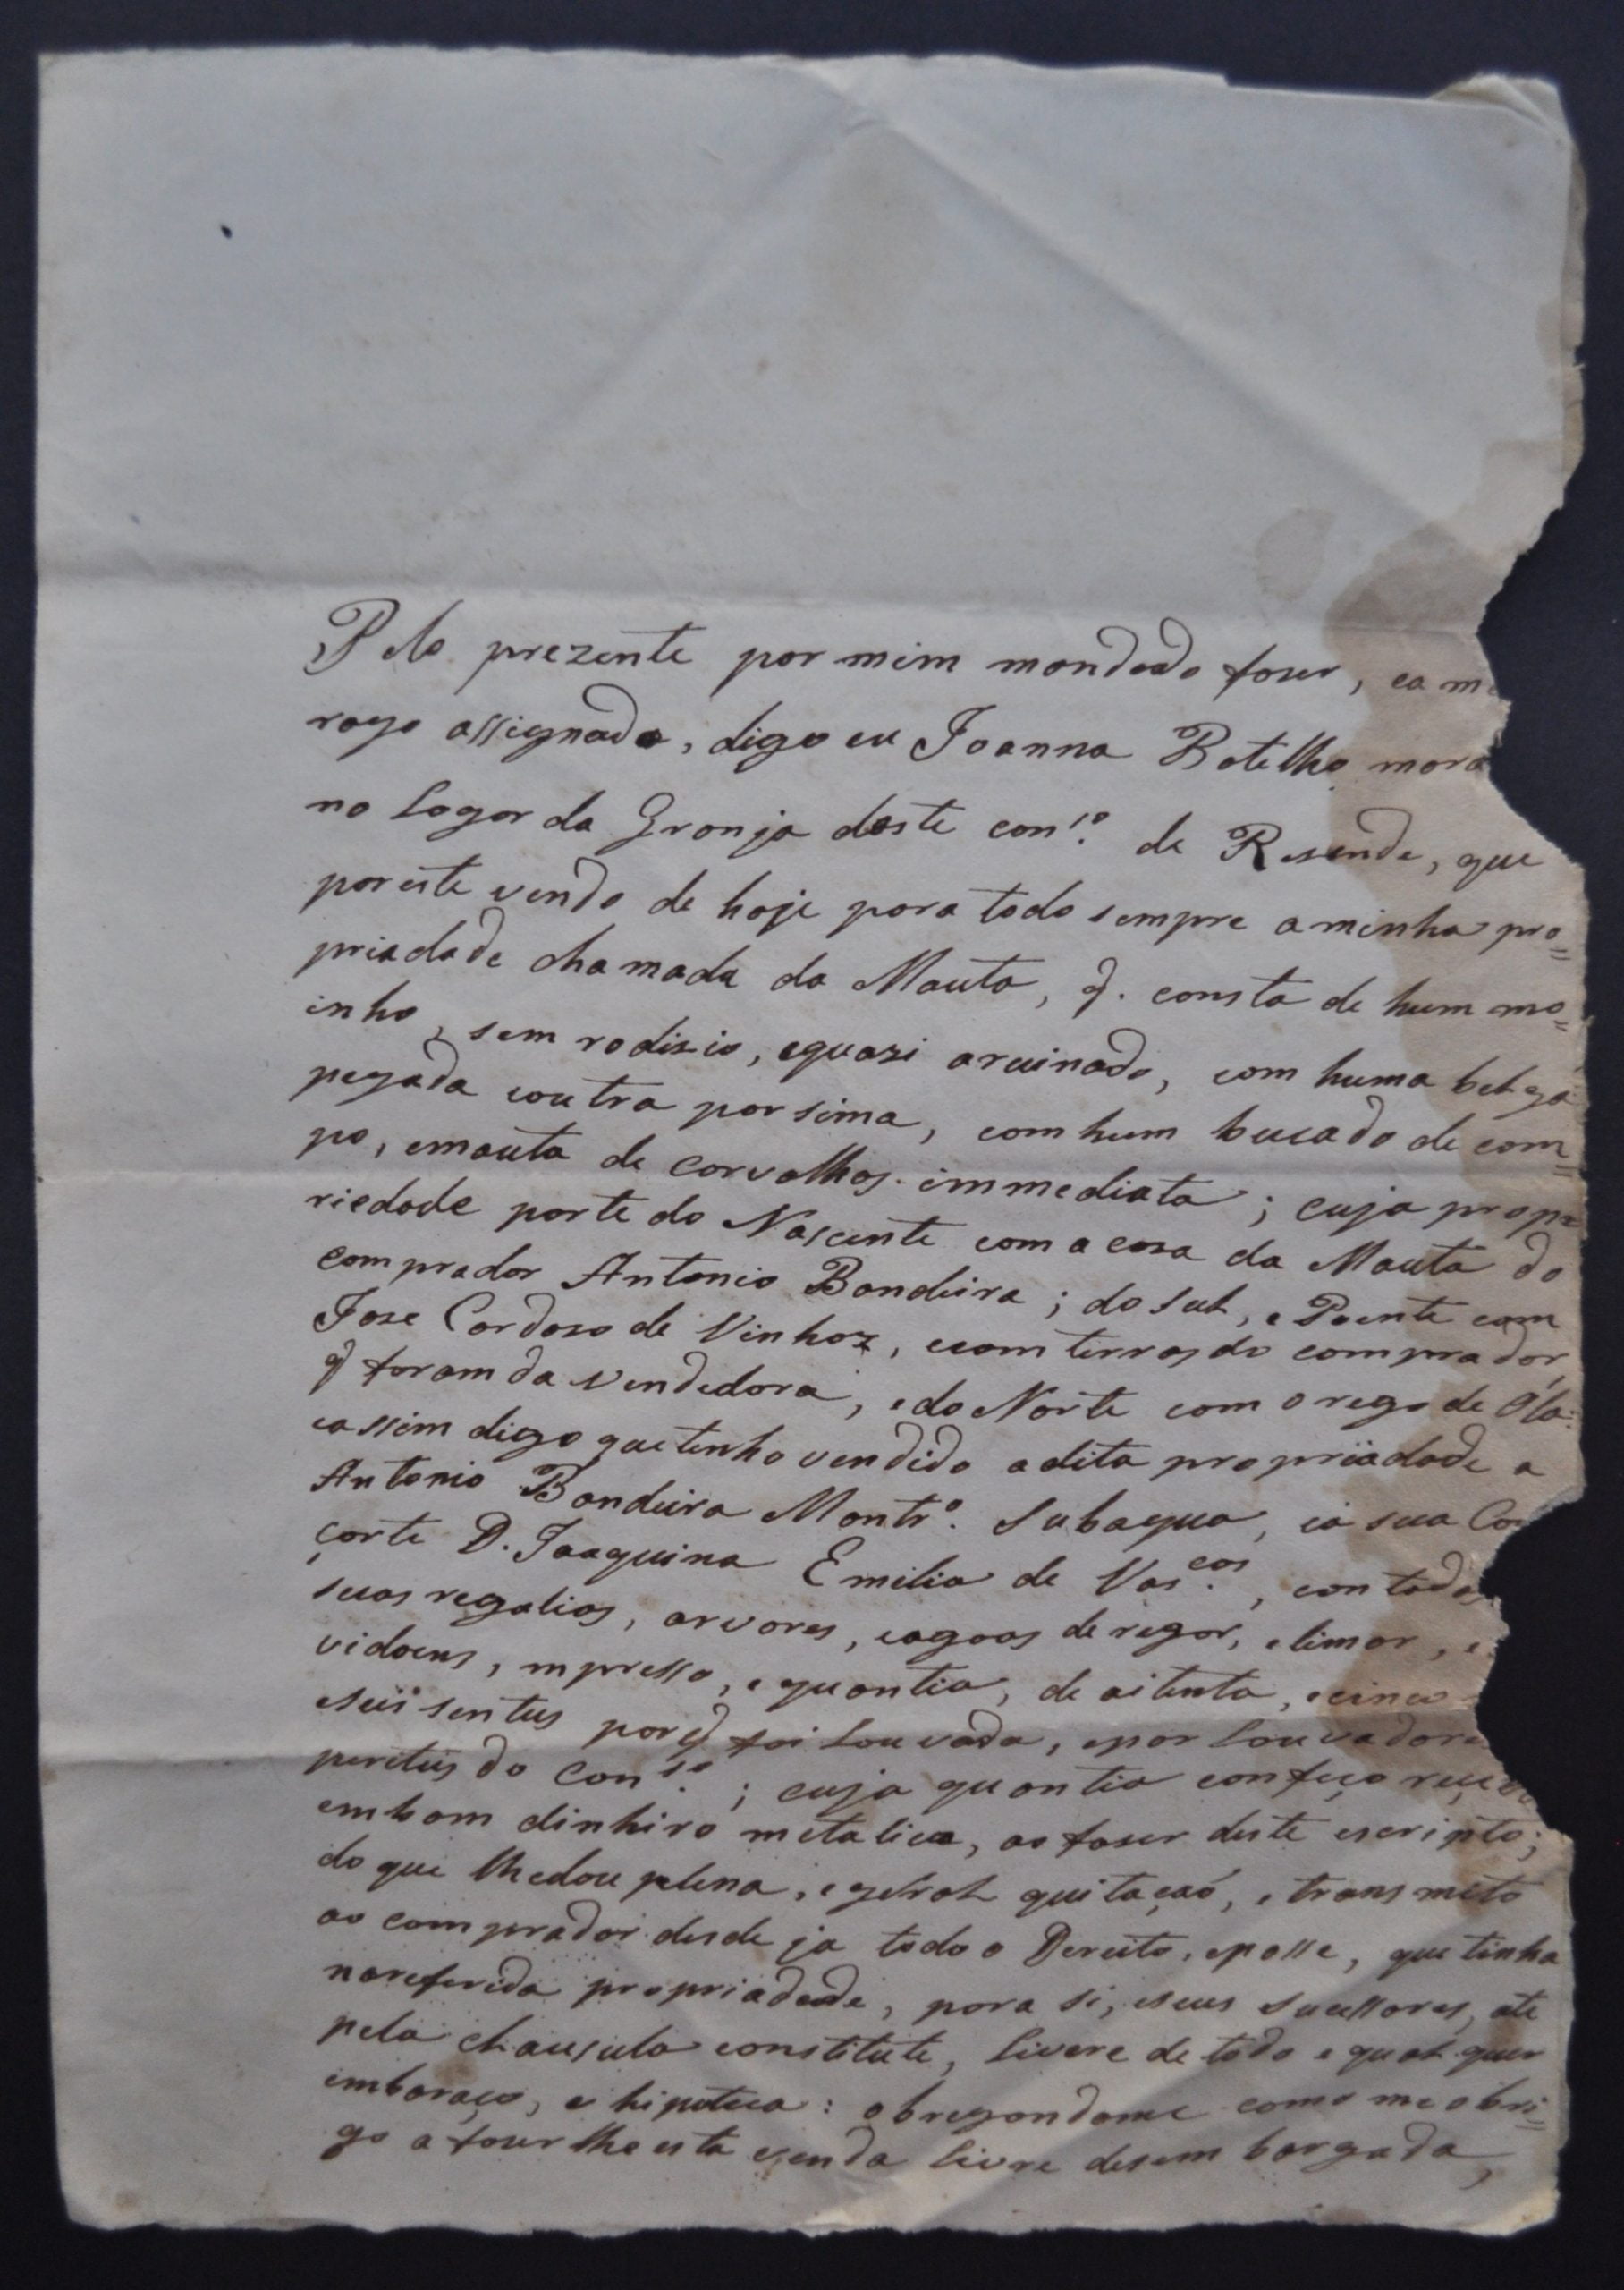 Pelo prezente por mim mandado faser, ea me
rogo assignado, digo eu Joanna Botelho mora
no Logar da Granja deste con.to de Resende, que
por este vendo de hoje para todo sempre a minha pro=
priadade chamada da Mauta, q. consta de hum mo=
inho, sem rodizio, equazi aruinado, com huma belga
pegada eoutra por sima, com hum bucado de cam=
po, emauta de carvalhos immediata; cuja prop=
riedade parte do Nascente com a caza da Mauta do
comprador Antonio Bandeira; do Sul, e Poente com
Joze Cardozo de Vinhoz, ecom terras do comprador,
q foram da vendedora, edo Norte com o rego de
eassim digo que tenho vendido adita propriadade a
Antonio Bandeira Montr.o Subagua, eá sua Con
çorte D. Joaquina Emilia de Vas.cos, con todas
suas regalias, arvores, eagoas de regar, elimar, e
vidoens, inpresso, e quantia, de oitenta, ecinco
eseiisentus por q foi Louvada, epor Louvadores
peretus do Con.so; cuja quantia confeço reçeber
embom dinhiro metalico, ao faser deste escripto;
do que lhedou plena, egeral quitaçaó, etransmeto
ao comprador desde ja todo o Dereito, eposse, que tinha
nareferida propriadade, para si, eseus sucessores, ate
pela clausula constitute, Livere de todo equalquer
imbaraço, e hipoteca: obregandome como me obri=
go a faserlhe esta venda livre desembargada,